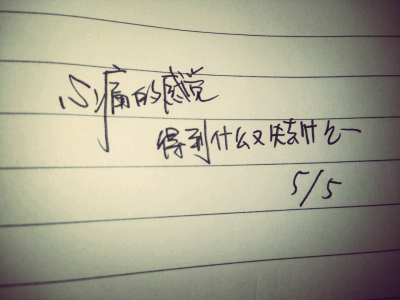 心痛的感觉
得到什么又失去什么
5/5